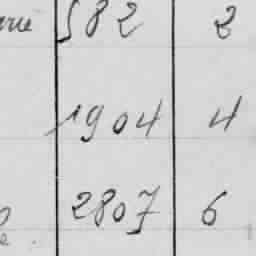 582 2
1904 4
2807 6